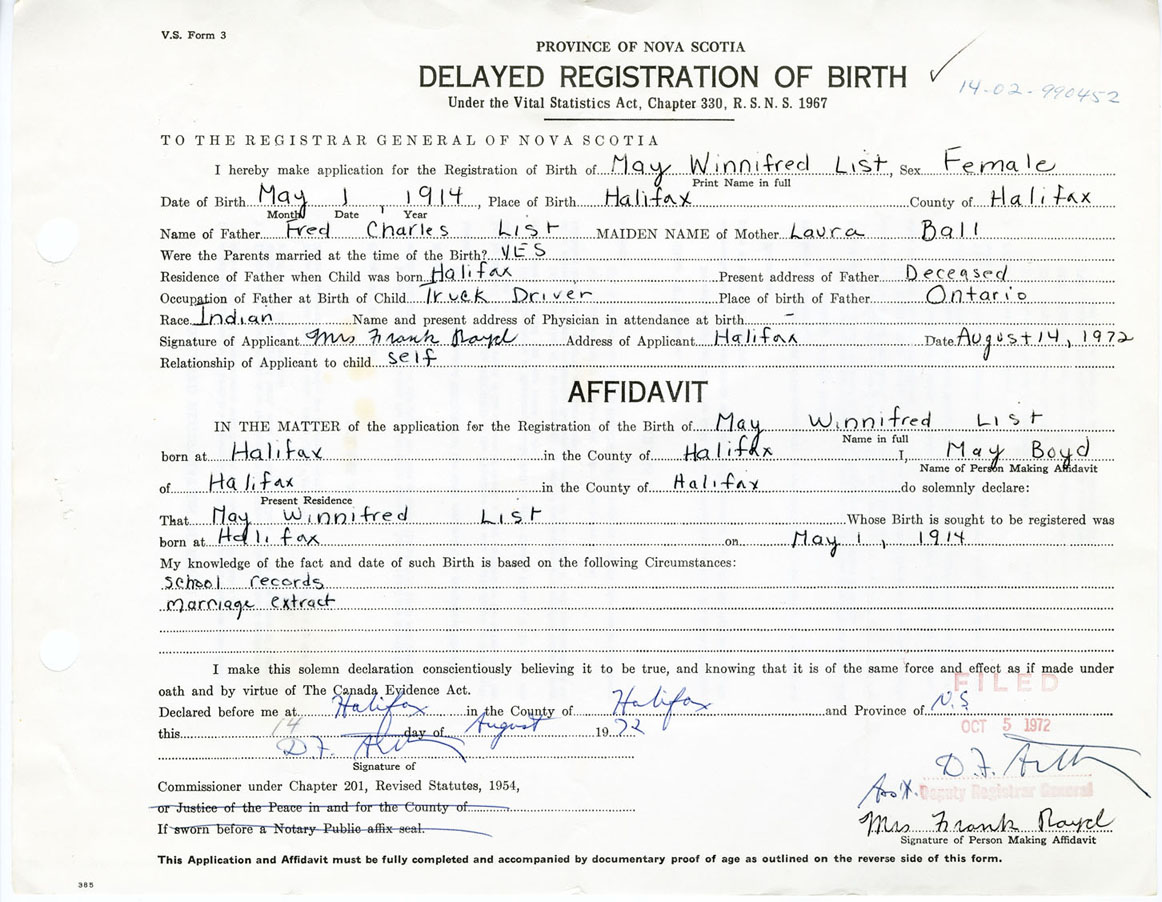 V.S. Form 3
PROVINCE OF NOVA SCOTIA
DELAYED REGISTRATION OF BIRTH ✓
14-02-990452
Under the Vital Statistics Act, Chapter 330, R. S. N. S. 1967
TO THE REGISTRAR GENERAL OF NOVA SCOTIA
I hereby make application for the Registration of Birth of May Winnifred List, Sex Female
Print Name in full
Date of Birth May 1, 1914, Place of Birth Halifax County of Halifax
Month Date Year
Name of Father Fred Charles List MAIDEN NAME of Mother Laura Ball
Were the Parents married at the time of the Birth? YES
Residence of Father when Child was born Halifax Present address of Father Deceased
Occupation of Father at Birth of Child Truck Driver Place of birth of Father Ontario
Race Indian Name and present address of Physician in attendance at birth -
Signature of Applicant Mrs Frank Boyd Address of Applicant Halifax Date August 14, 1972
Relationship of Applicant to child self
AFFIDAVIT
IN THE MATTER of the application for the Registration of the Birth of May Winnifred List
Name in full
born at Halifax in the County of Halifax I, May Boyd
Name of Person Making Affidavit
of Halifax in the County of Halifax do solemnly declare:
Present Residence
That May Winnifred List Whose Birth is sought to be registered was
born at Halifax on May 1, 1914
My knowledge of the fact and date of such Birth is based on the following Circumstances:
school records
marriage extract
I make this solemn declaration conscientiously believing it to be true, and knowing that it is of the same force and effect as if made under
oath and by virtue of The Canada Evidence Act.
FILED
Declared before me at Halifax in the County of Halifax and Province of N.S
this 14 day of August 1972
OCT 5 1972
Signature of
Commissioner under Chapter 201, Revised Statutes, 1954,
or Justice of the Peace in and for the County of
Deputy Registrar General
If sworn before a Notary Public affix seal.
Mrs Frank Boyd
Signature of Person Making Affidavit
This Application and Affidavit must be fully completed and accompanied by documentary proof of age as outlined on the reverse side of this form.
385